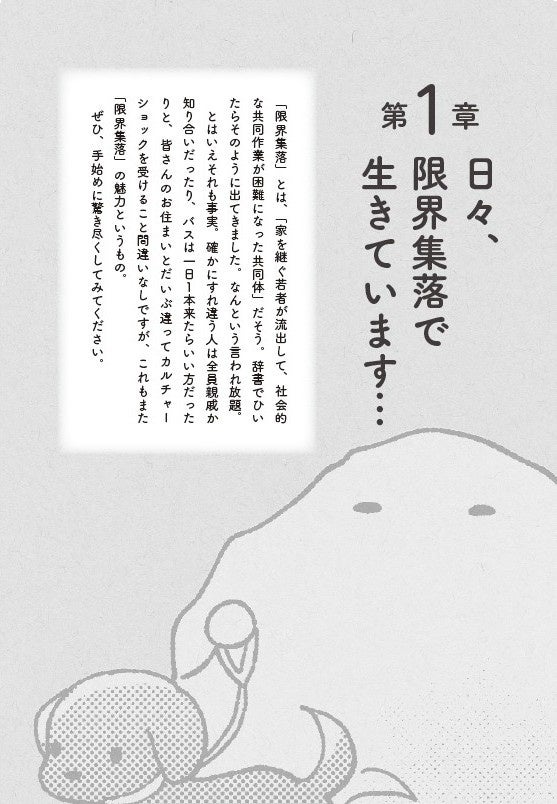 第1章
日々、
限界集落で
生きています…
「限界集落」とは、「家を継ぐ若者が流出して、社会的
な共同作業が困難になった共同体」だそう。辞書でひい
たらそのように出てきました。なんという言われ放題。
とはいえそれも事実。確かにすれ違う人は全員親戚か
知り合いだったり、バスは一日1本来たらいい方だった
りと、皆さんのお住まいとだいぶ違ってカルチャー
ショックを受けること間違いなしですが、これもまた
「限界集落」の魅力というもの。
ぜひ、手始めに驚き尽くしてみてください。